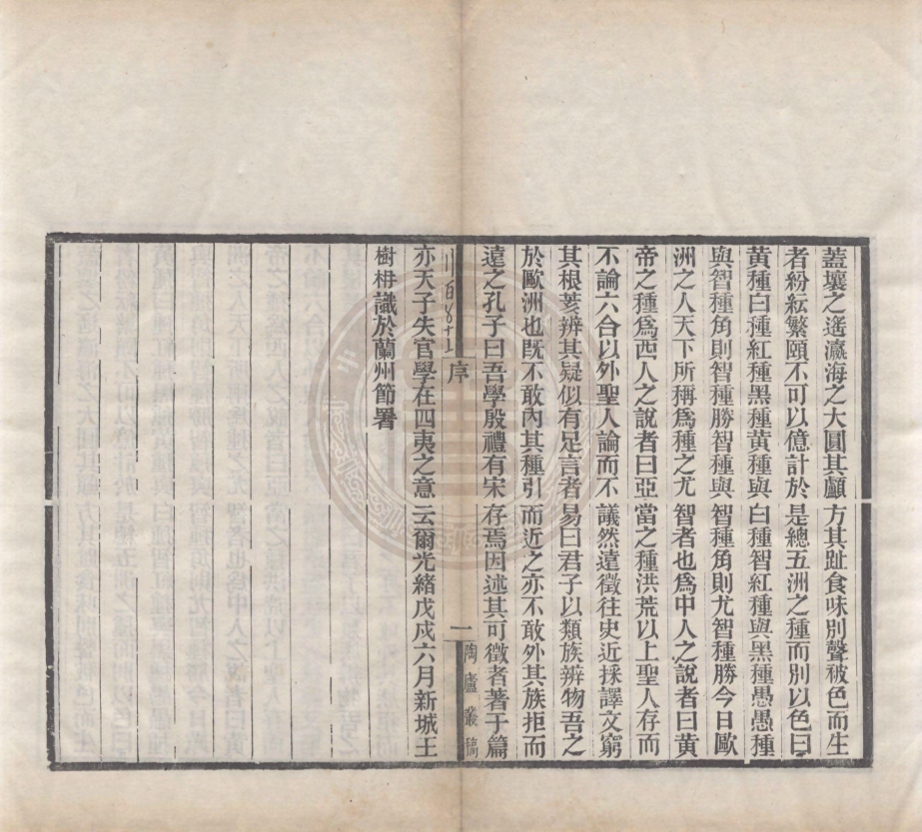 蓋壤之遙瀛海之大圓其顱方其趾食味別聲被色而生
者紛紜繁頤不可以億計於是總五洲之種而別以色曰
黃種白種紅種黑種黃種與白種智紅種與黑種愚愚種
與智種角則智種勝智種與智種角則尤智種勝今日歐
洲之人天下所稱爲種之尤智者也爲中人之說者曰黃
帝之種爲西人之說者曰亞當之種洪荒以上聖人存而
不論六合以外聖人論而不議然遠徵往史近採譯文窮
其根荄辨其疑似有足言者易曰君子以類族辨物吾之
於歐洲也既不敢內其種引而近之亦不敢外其族拒而
遠之孔子曰吾學殷禮有宋存焉因述其可徵者著于篇
序
一
陶廬叢稿
亦天子失官學在四夷之意云爾光緒戊戌六月新城王
樹枏識於蘭州節署